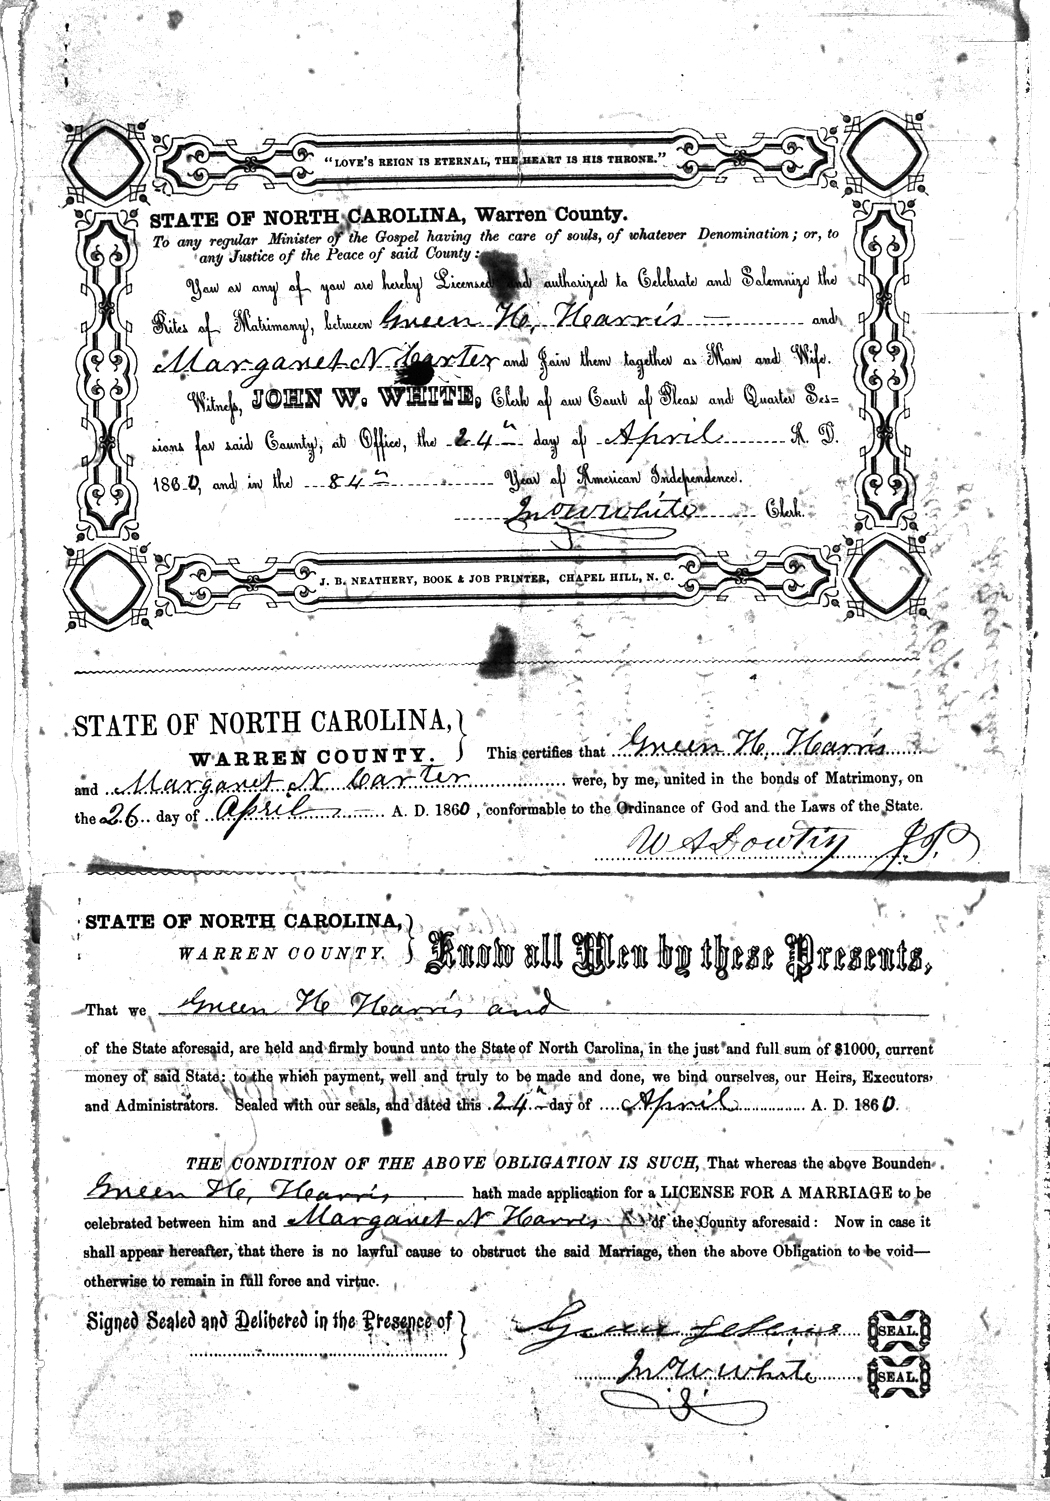 "LOVE'S REIGN IS ETERNAL, THE HEART IS HIS THRONE."
STATE OF NORTH CAROLINA, Warren County.
To any regular Minister of the Gospel having the care of souls, of whatever Denomination; or, to
any Justice of the Peace of said County:
You or any of you are hereby Licensed and authorized to Celebrate and Solemnize the
Rites of Matrimony, between Green H. Harris and
Margaret N Carter and Join them together as Man and Wife.
Witness, JOHN W. WHITE, Clerk of our Court of Pleas and Quarter Ses=
sions for said County, at Office, the 24th day of April A. D.
1860, and in the 84th Year of American Independence.
Jno W White Clerk.
J. B. NEATHERY, BOOK & JOB PRINTER, CHAPEL HILL, N. C.
STATE OF NORTH CAROLINA,
WARREN COUNTY. This certifies that Green H. Harris
and Margaret N Carter were, by me, united in the bonds of Matrimony, on
the 26 day of April A. D. 1860, conformable to the Ordinance of God and the Laws of the State.
W A Dowtin J.P.
STATE OF NORTH CAROLINA,
WARREN COUNTY. Know all Men by these Presents,
That we Green H Harris and
of the State aforesaid, are held and firmly bound unto the State of North Carolina, in the just and full sum of $1000, current
money of said State: to the which payment, well and truly to be made and done, we bind ourselves, our Heirs, Executors
and Administrators. Sealed with our seals, and dated this 24th day of April A. D. 1860.
THE CONDITION OF THE ABOVE OBLIGATION IS SUCH, That whereas the above Bounden
Green H. Harris hath made application for a LICENSE FOR A MARRIAGE to be
celebrated between him and Margaret N Harris of the County aforesaid: Now in case it
shall appear hereafter, that there is no lawful cause to obstruct the said Marriage, then the above Obligation to be void—
otherwise to remain in full force and virtue.
Signed Sealed and Delivered in the Presence of
Green SEAL.
Jno W White SEAL.